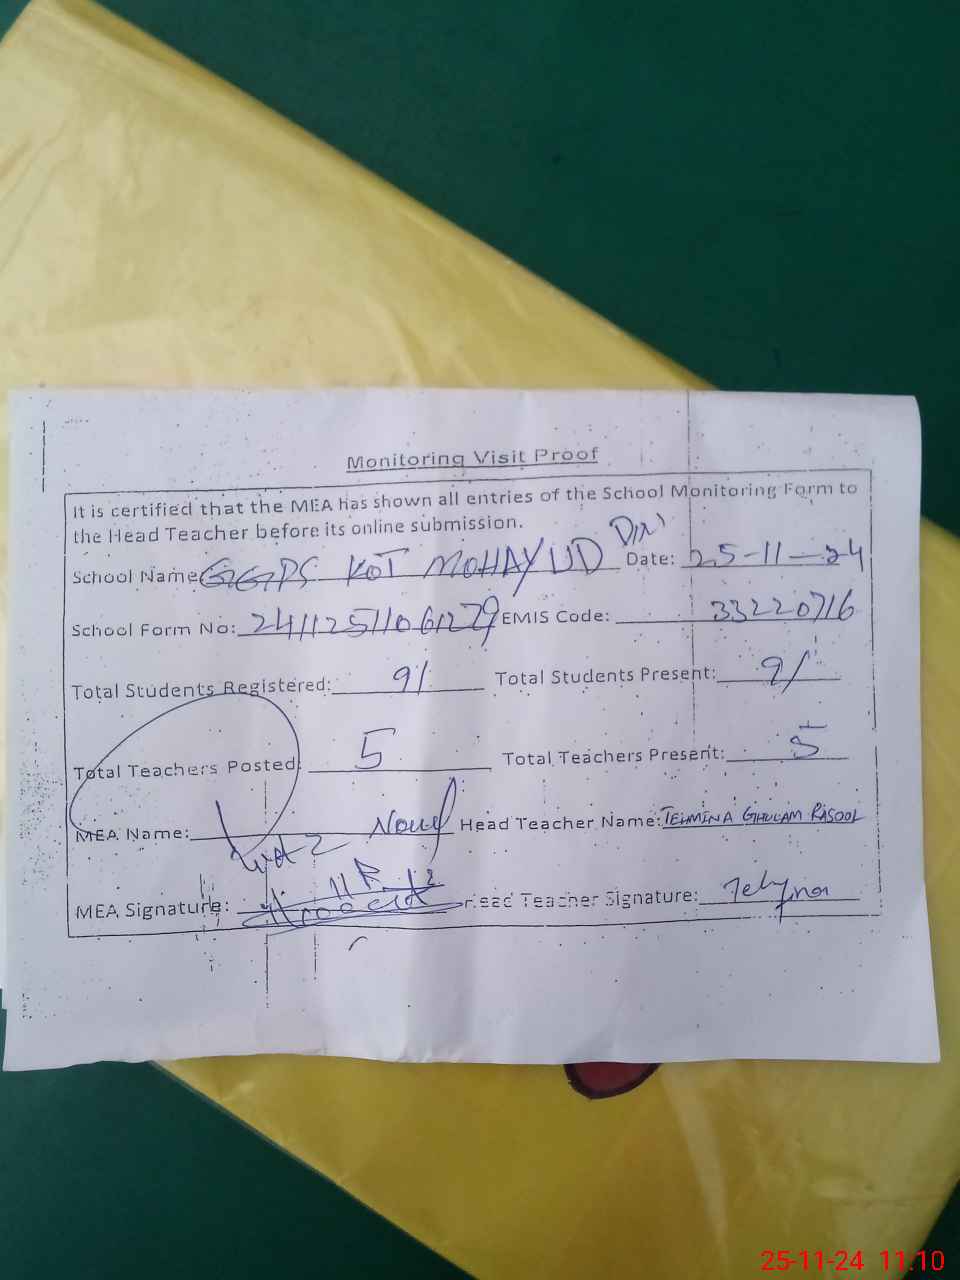 Monitoring Visit Proof
It is certified that the MEA has shown all entries of the School Monitoring Form to
the Head Teacher before its online submission.
School Name GGPS KOT MOHAYUD DIN Date: 25-11-24
School Form No: EMIS Code: 33220716
Total Students Registered: 91 Total Students Present: 91
Total Teachers Posted: 5 Total Teachers Present: 5
MEA Name: Head Teacher Name: TEHMINA GHULAM RASOOL
MEA Signature: Head Teacher Signature:
25-11-24 11:10